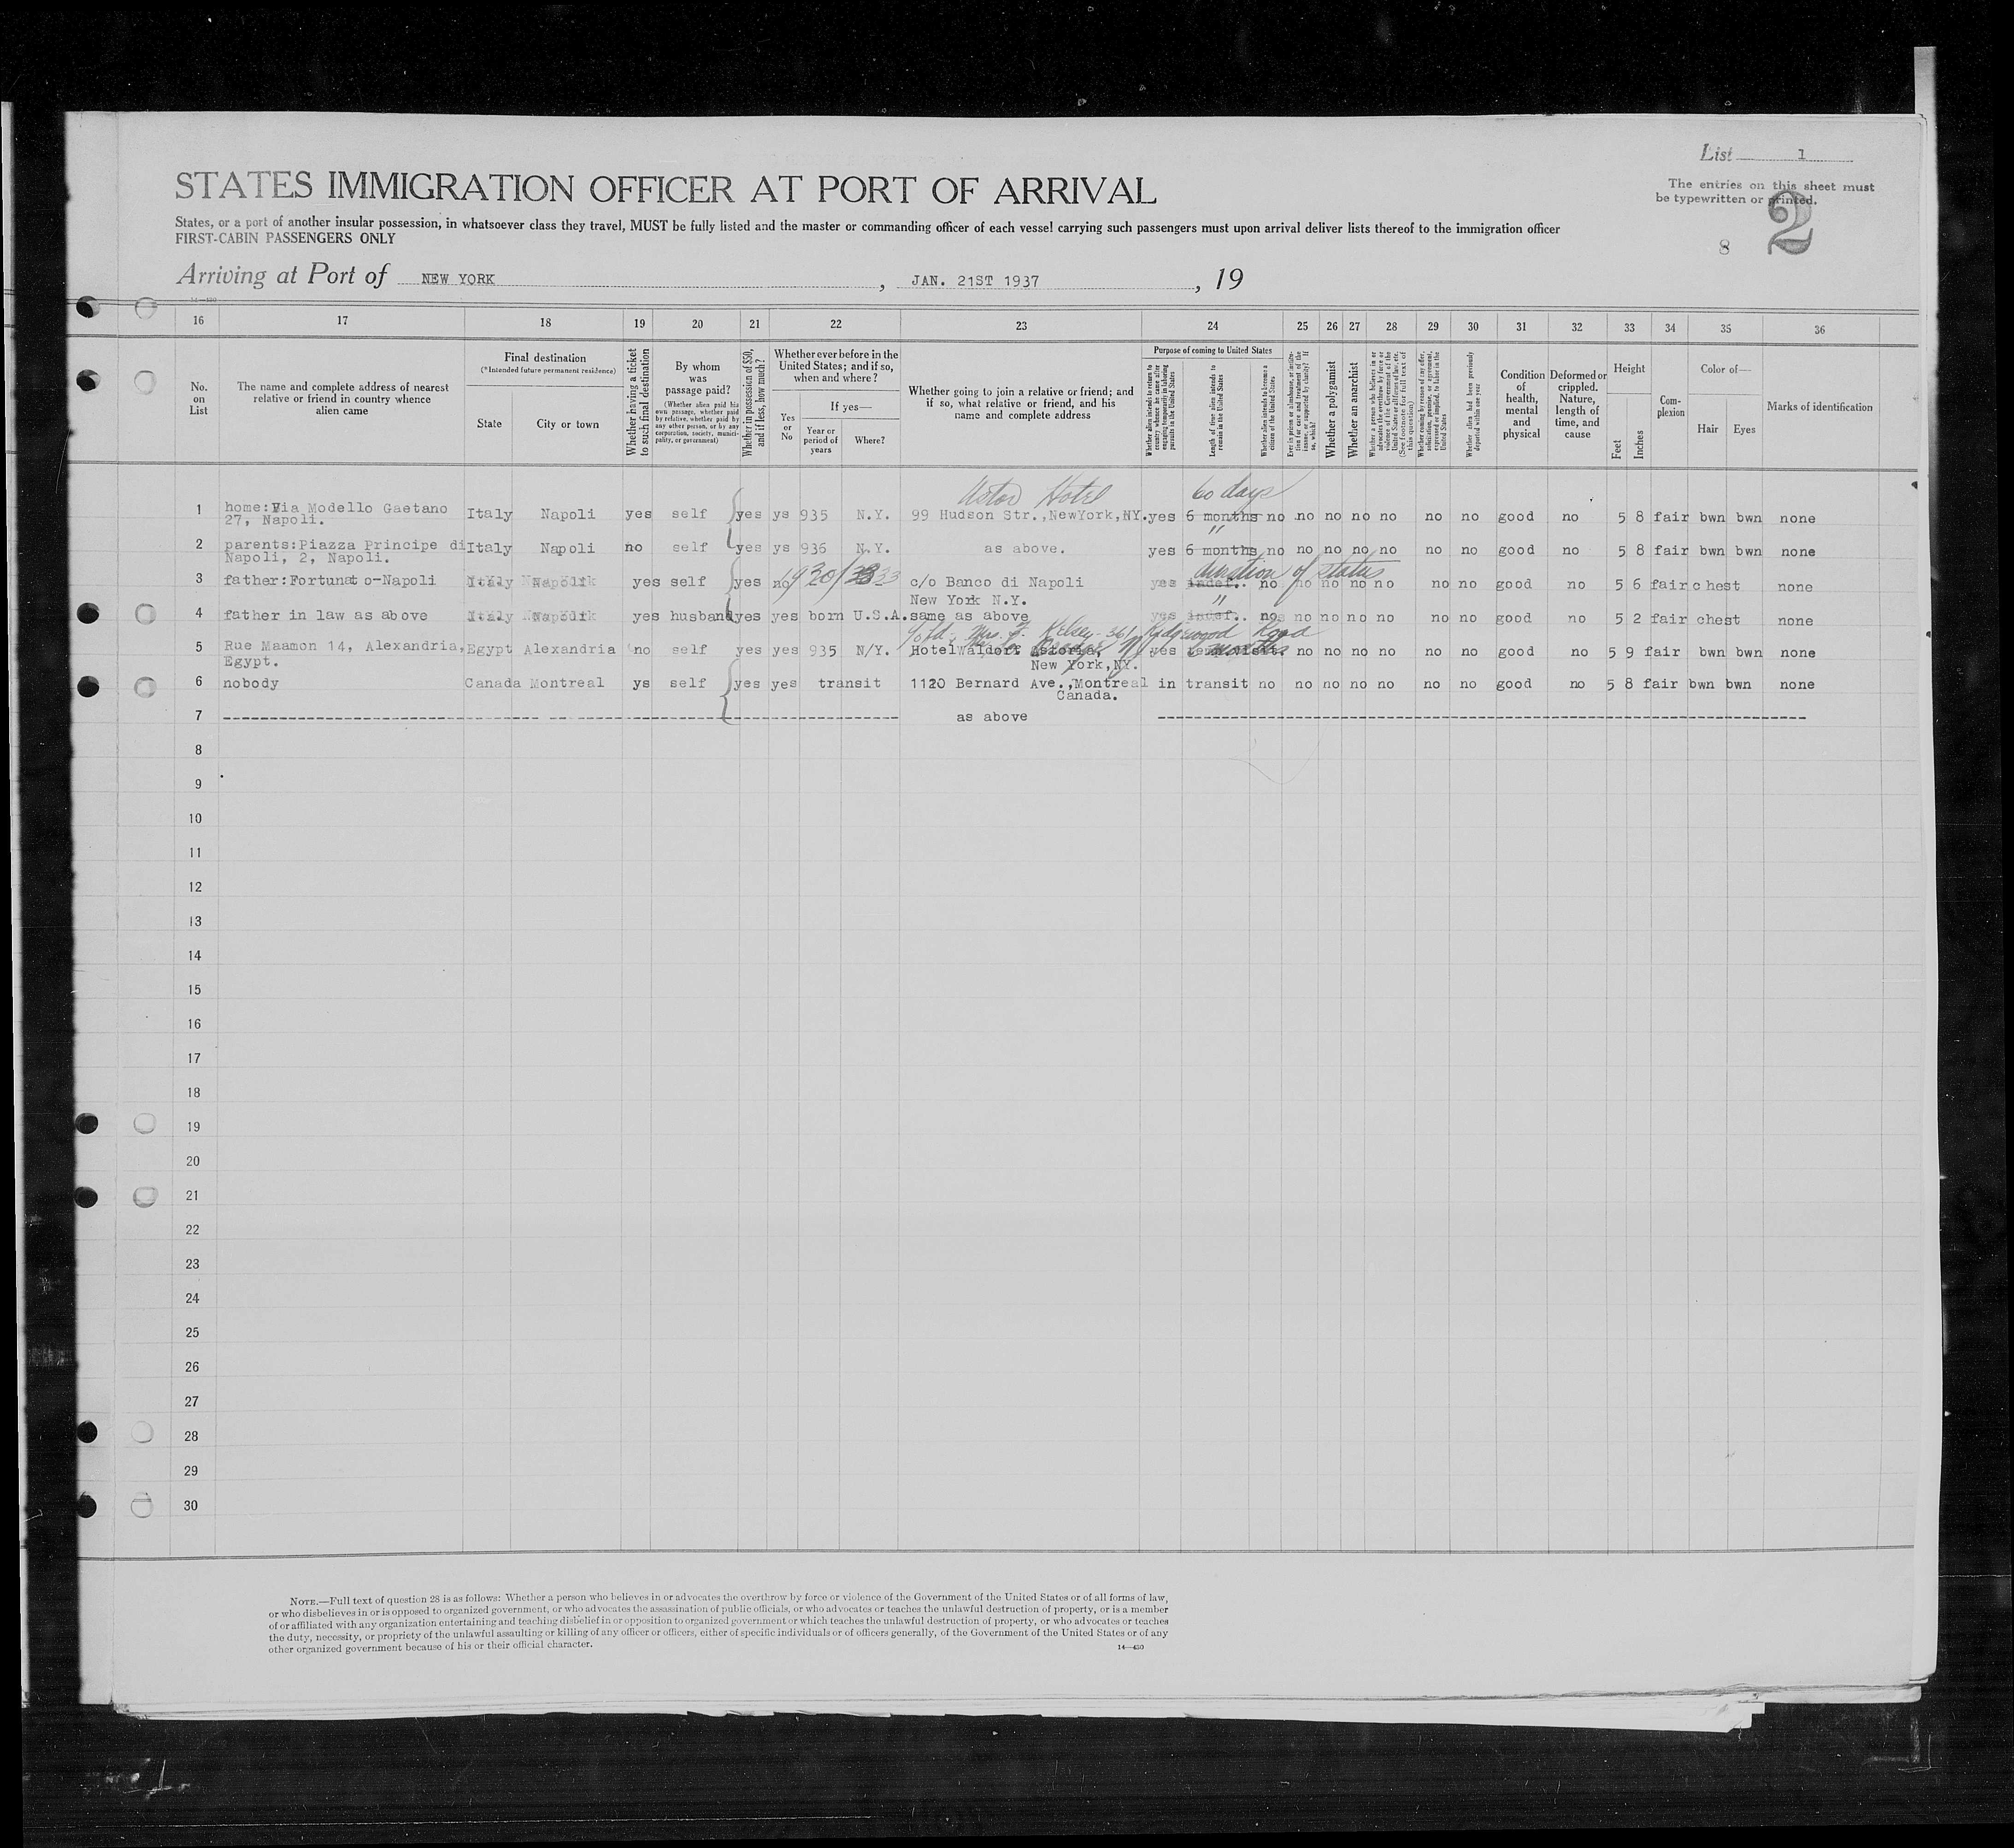 List 1
STATES IMMIGRATION OFFICER AT PORT OF ARRIVAL
The entries on this sheet must
be typewritten or printed.
2
8
States, or a port of another insular possession, in whatsoever class they travel, MUST be fully listed and the master or commanding officer of each vessel carrying such passengers must upon arrival deliver lists thereof to the immigration officer
FIRST-CABIN PASSENGERS ONLY
Arriving at Port of NEW YORK, JAN. 21ST 1937, 19
14—430
16 17 18 19 20 21 22 23 24 25 26 27 28 29 30 31 32 33 34 35 36
No. on List
The name and complete address of nearest relative or friend in country whence alien came
Final destination
(*Intended future permanent residence)
State
City or town
Whether having a ticket to such final destination
By whom was passage paid?
(Whether alien paid his own passage, whether paid by relative, whether paid by any other person, or by any corporation, society, municipality, or government)
Whether in possession of $50, and if less, how much?
Whether ever before in the United States; and if so, when and where?
Yes or No
If yes—
Year or period of years
Where?
Whether going to join a relative or friend; and if so, what relative or friend, and his name and complete address
Purpose of coming to United States
Whether alien intends to return to country whence he came after engaging temporarily in laboring pursuits in the United States
Length of time alien intends to remain in the United States
Whether alien intends to become a citizen of the United States
Whether a polygamist
Whether an anarchist
Condition of health, mental and physical
Deformed or crippled. Nature, length of time, and cause
Height
Feet
Inches
Complexion
Color of—
Hair
Eyes
Marks of identification
Hotel 60 days
1 home:Via Modello Gaetano 27, Napoli. Italy Napoli yes self yes ys 935 N.Y. 99 Hudson Str.,NewYork,NY. yes 6 months no no no no no no no good no 5 8 fair bwn bwn none
"
2 parents:Piazza Principe di Napoli, 2, Napoli. Italy Napoli no self yes ys 936 N.Y. as above. yes 6 months no no no no no no no good no 5 8 fair bwn bwn none
duration of status
3 father:Fortunat o-Napoli Italy yes self yes no 1930/33 c/o Banco di Napoli New York N.Y. yes indef. no no no no no no no good no 5 6 fair chest none
"
4 father in law as above Italy yes husband yes yes born U.S.A. same as above yes indef. no no no no no no no good no 5 2 fair chest none
Mrs. F. Kelsey- 361 Ridgewood Road
5 Rue Maamon 14, Alexandria, Egypt. Egypt Alexandria no self yes yes 935 N/Y. Hotel Waldorf Astoria, New York,NY. yes no no no no no no good no 5 9 fair bwn bwn none
6 nobody Canada Montreal ys self yes yes transit 1120 Bernard Ave.,Montreal Canada. in transit no no no no no no no good no 5 8 fair bwn bwn none
7 as above
8
9
10
11
12
13
14
15
16
17
18
19
20
21
22
23
24
25
26
27
28
29
30
NOTE.—Full text of question 28 is as follows: Whether a person who believes in or advocates the overthrow by force or violence of the Government of the United States or of all forms of law,
or who disbelieves in or is opposed to organized government, or who advocates the assassination of public officials, or who advocates or teaches the unlawful destruction of property, or is a member
of or affiliated with any organization entertaining and teaching disbelief in or opposition to organized government or which teaches the unlawful destruction of property, or who advocates or teaches
the duty, necessity, or propriety of the unlawful assaulting or killing of any officer or officers, either of specific individuals or of officers generally, of the Government of the United States or of any
other organized government because of his or their official character.
14—430